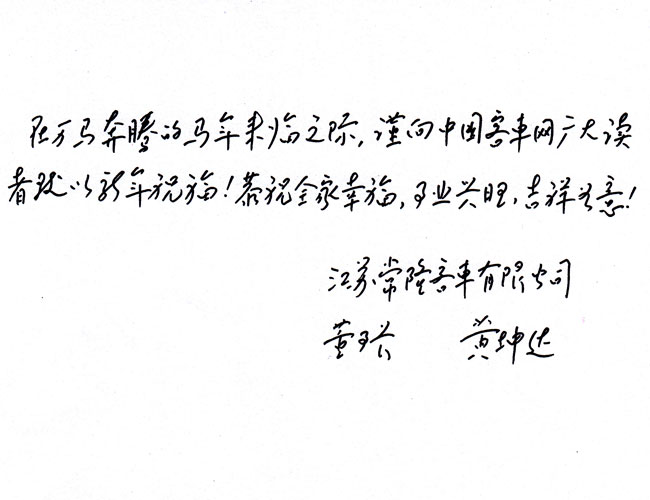 在万马奔腾的马年来临之际,谨向中国客车网广大读
者致以新年祝福!恭祝全家幸福,事业兴旺,吉祥如意!
江苏常隆客车有限公司
董事长 黄坤达